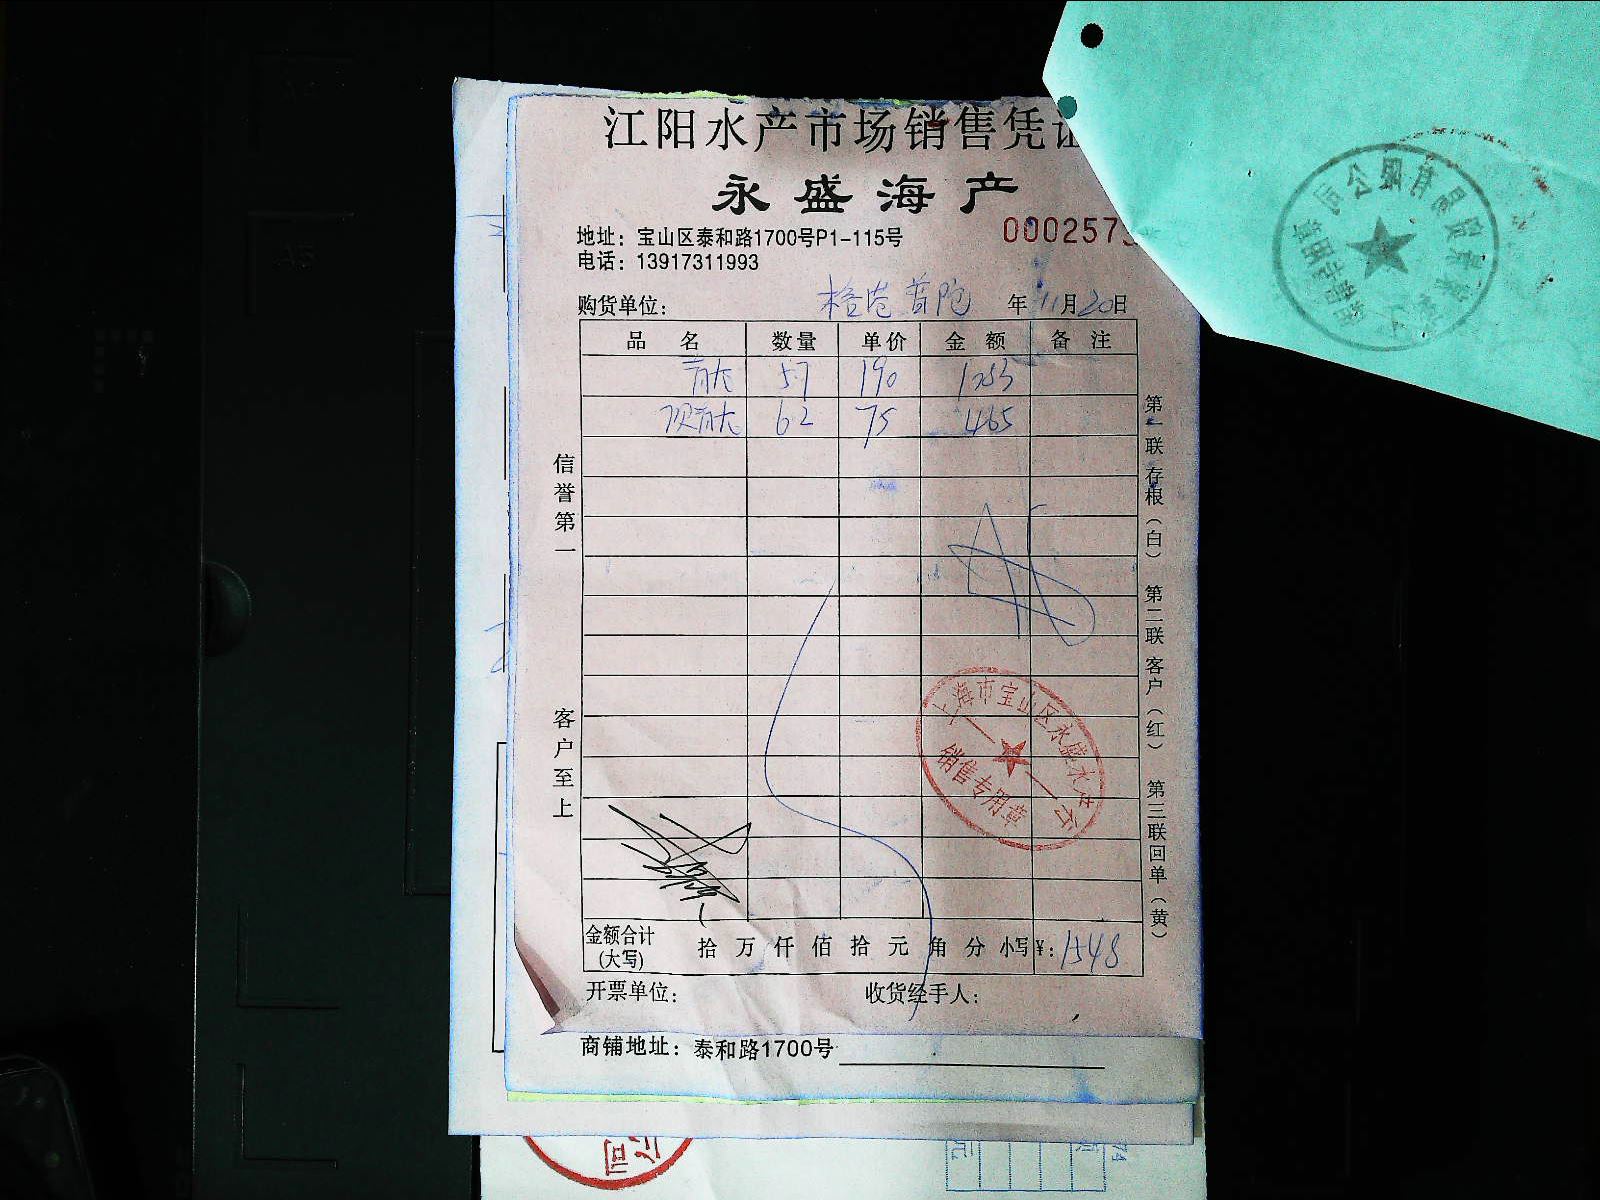 江阳水产市场销售凭
永盛海产
地址：宝山区泰和路1700号P1-115号
000257
电话：13917311993
购货单位： 年 11月20日
品 名 数量 单价 金 额 备 注
青大 5.7 190 1083
次青大 6.2 75 465
信誉第一
客户至上
第一联 存根（白） 第二联 客户（红） 第三联 回单（黄）
上海市宝山区永盛水产
销售专用章
金额合计 (大写) 拾 万 仟 佰 拾 元 角 分 小写¥：1548
开票单位： 收货经手人：
商铺地址：泰和路1700号